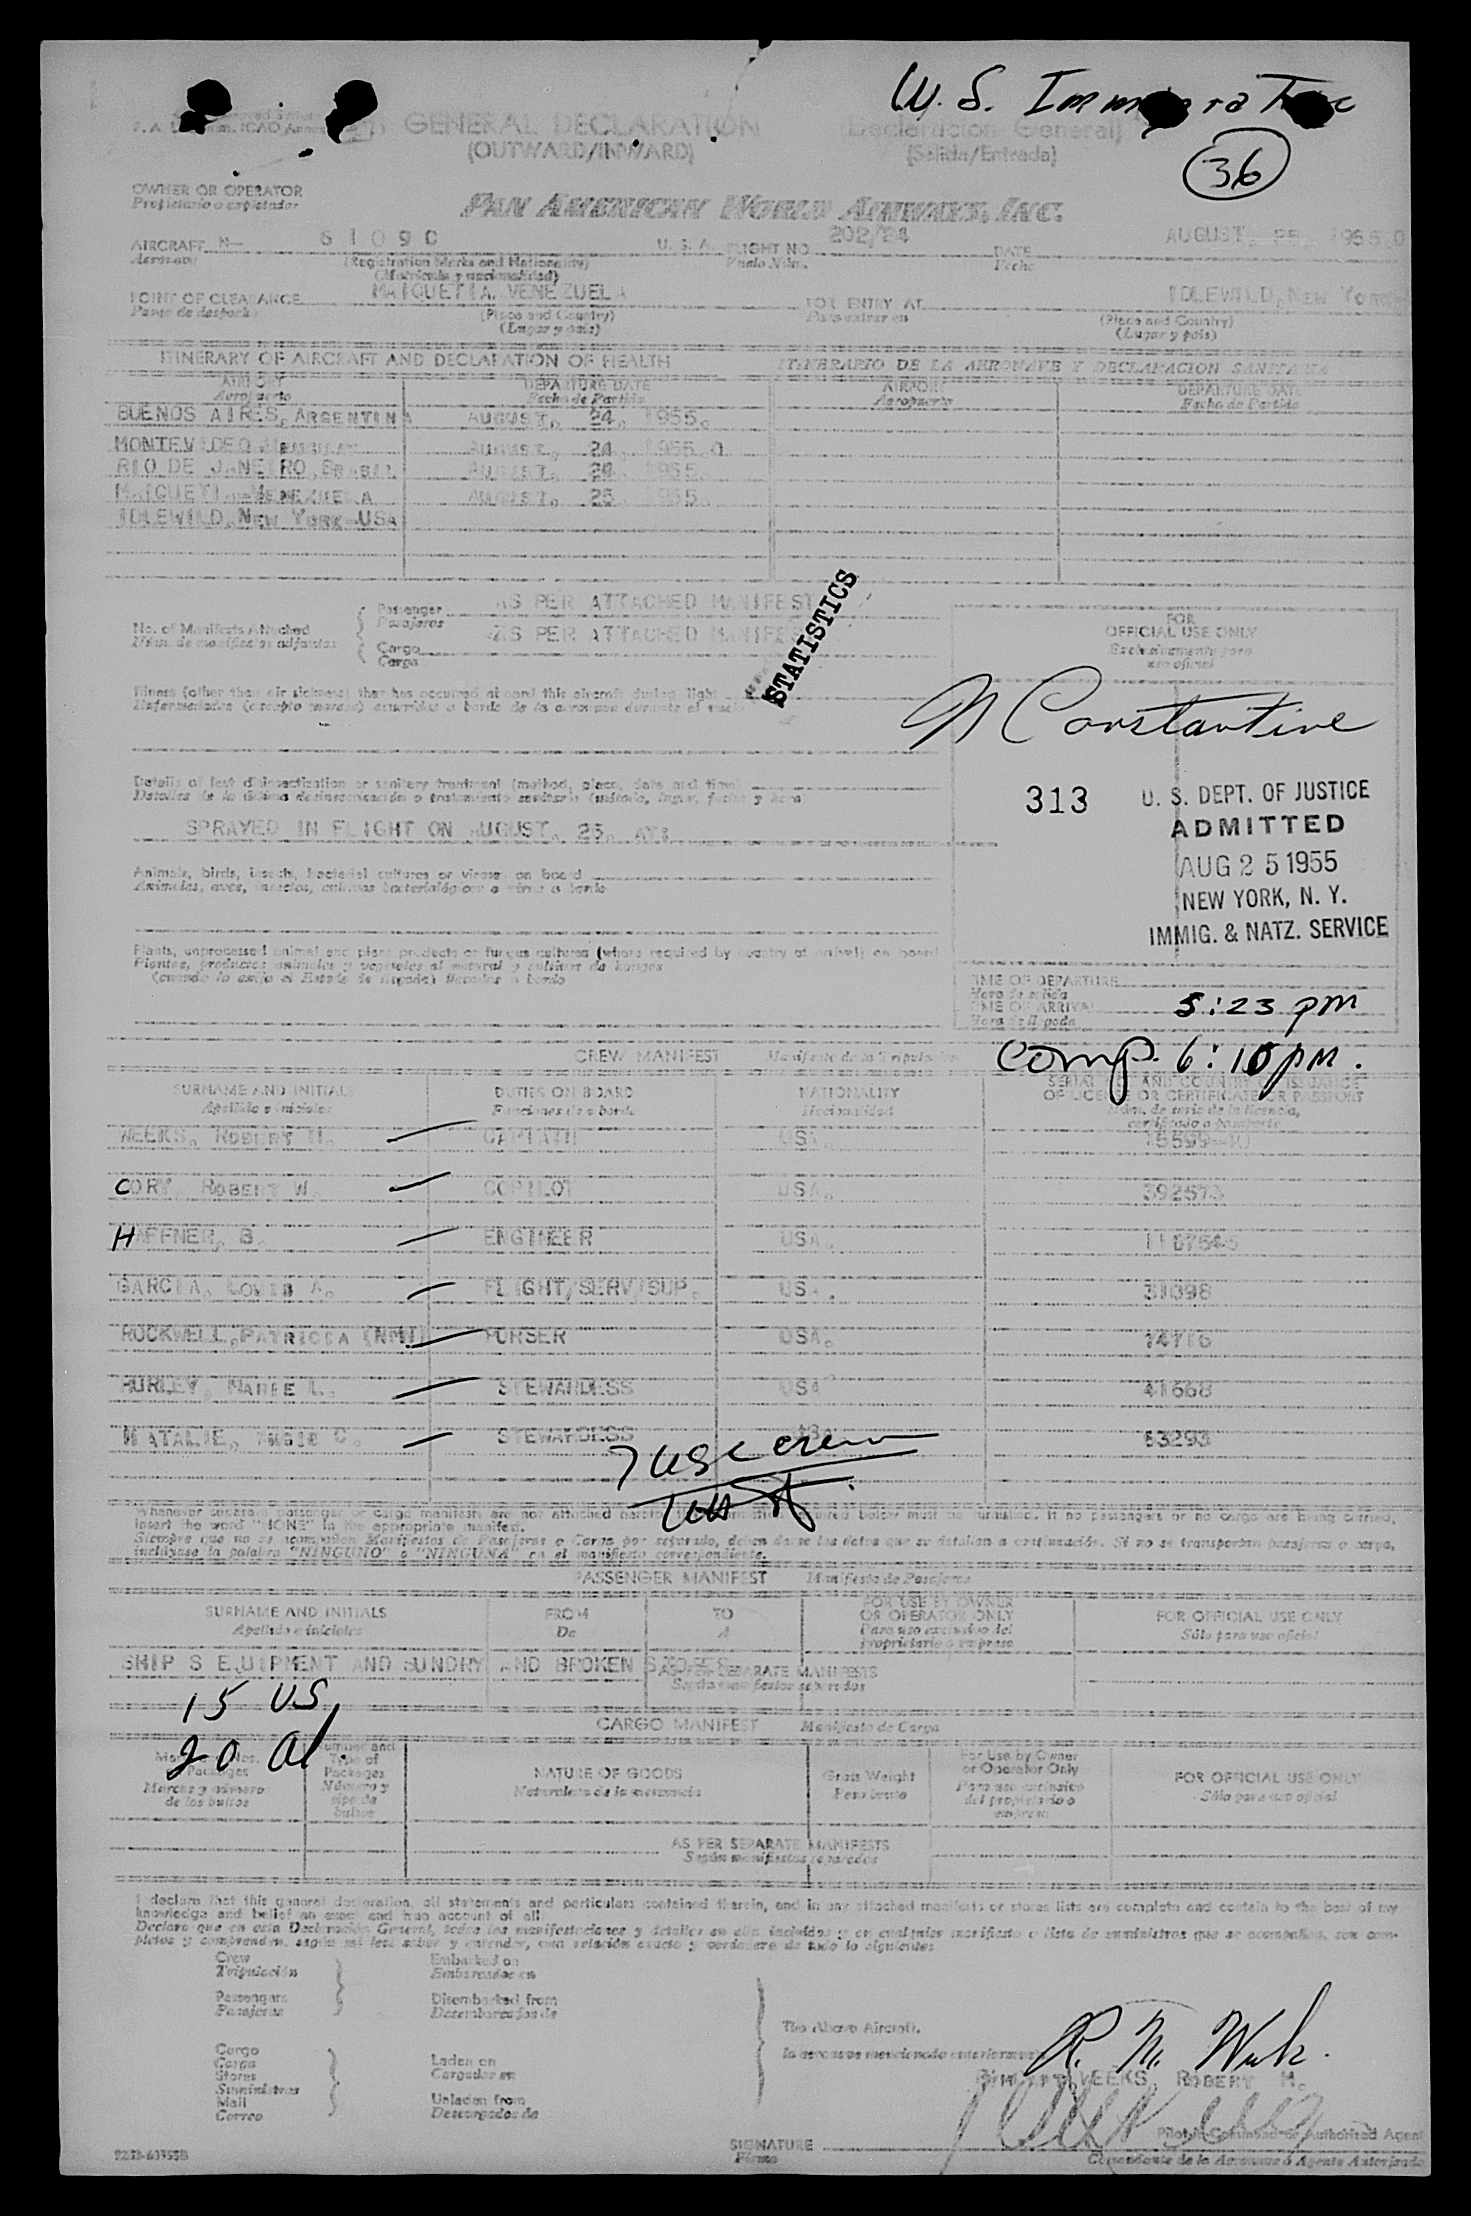 U. S. Immigration
GENERAL DECLARATION (Declaracion General)
(OUTWARD/INWARD) (Salida/Entrada)
36
OWNER OR OPERATOR
Propietario o explotador
PAN AMERICAN WORLD AIRWAYS, INC.
AIRCRAFT N- 6109C U. S. A. FLIGHT NO. 202/24 DATE AUGUST, 25, 1955.
Aeronave (Registration Marks and Nationality) Vuelo Núm. Fecha
(Matrícula y nacionalidad)
POINT OF CLEARANCE MAIQUETIA, VENEZUELA FOR ENTRY AT IDLEWILD, NEW YORK
Punto de despacho (Place and Country) Para entrar en (Place and Country)
(Lugar y país) (Lugar y país)
ITINERARY OF AIRCRAFT AND DECLARATION OF HEALTH ITINERARIO DE LA AERONAVE Y DECLARACION SANITARIA
AIRPORT DEPARTURE DATE AIRPORT DEPARTURE DATE
Aeropuerto Fecha de Partida Aeropuerto Fecha de Partida
BUENOS AIRES, ARGENTINA AUGUST, 24, 1955.
MONTEVIDEO URUGUAY AUGUST, 24, 1955.
RIO DE JANEIRO, BRASIL AUGUST, 24, 1955.
MAIQUETIA, VENEZUELA AUGUST, 25, 1955.
IDLEWILD, NEW YORK-USA
No. of Manifests Attached Passenger AS PER ATTACHED MANIFEST
Núm. de manifiestos adjuntos Pasajeros
Cargo AS PER ATTACHED MANIFEST
Carga
STATISTICS
FOR
OFFICIAL USE ONLY
Exclusivamente para
uso oficial
Illness (other than air sickness) that has occurred aboard this aircraft during flight
Enfermedades (excepto mareos) ocurridas a bordo de la aeronave durante el vuelo
N Constantine
Details of last disinsectization or sanitary treatment (method, place, date and time)
Detalles de la última desinsectización o tratamiento sanitario (método, lugar, fecha y hora)
SPRAYED IN FLIGHT ON AUGUST, 25, AT:
313
U. S. DEPT. OF JUSTICE
ADMITTED
AUG 25 1955
NEW YORK, N. Y.
IMMIG. & NATZ. SERVICE
Animals, birds, insects, bacterial cultures or viruses on board
Animales, aves, insectos, cultivos bacteriológicos o virus a bordo
Plants, unprocessed animal and plant products or fungus cultures (where required by country of arrival) on board
Plantas, productos animales y vegetales al natural y cultivos de hongos
(cuando lo exija el Estado de llegada) llevados a bordo
TIME OF DEPARTURE
Hora de salida
TIME OF ARRIVAL 5:23 pm
Hora de llegada
Comp. 6:10 pm.
CREW MANIFEST Manifiesto de la Tripulación
SURNAME AND INITIALS DUTIES ON BOARD NATIONALITY SERIAL AND COUNTRY OF ISSUANCE
OF LICENSE OR CERTIFICATE OR PASSPORT
Apellido e iniciales Funciones de a bordo Nacionalidad Núm. de serie de la licencia,
certificado o pasaporte
WEEKS, ROBERT M. CAPTAIN USA.
CORY, ROBERT W. COPILOT USA. 392573
HAFFNER, B. ENGINEER USA.
GARCIA, LOUIS A. FLIGHT/SERV/SUP. USA. 31398
ROCKWELL, PATRICIA (NMN) PURSER USA. 74716
HURLEY, MARIE L. STEWARDESS USA 41668
NATALIE, C. STEWARDESS 63293
7 USC crew
Whenever separate passenger or cargo manifests are not attached hereto, the information required below must be furnished. If no passengers or no cargo are being carried,
insert the word "NONE" in the appropriate manifest.
Siempre que no se acompañen Manifiestos de Pasajeros o Carga por separado, deben darse los datos que se detallan a continuación. Si no se transportan pasajeros o carga,
inclúyase la palabra "NINGUNO" o "NINGUNA" en el manifiesto correspondiente.
PASSENGER MANIFEST Manifiesto de Pasajeros
SURNAME AND INITIALS FROM TO FOR USE BY OWNER OR OPERATOR ONLY FOR OFFICIAL USE ONLY
Apellido e iniciales De A Para uso exclusivo del propietario o empresa Sólo para uso oficial
SHIP S EQUIPMENT AND SUNDRY AND BROKEN STORES
AS PER SEPARATE MANIFESTS
Según manifiestos separados
15 US.
20 Al.
CARGO MANIFEST Manifiesto de Carga
Packages
Marcas y número de los bultos
Number and Type of Packages
Número y tipo de bultos
NATURE OF GOODS
Naturaleza de la mercancía
Gross Weight
Peso bruto
For Use by Owner or Operator Only
Para uso exclusivo del propietario o empresa
FOR OFFICIAL USE ONLY
Sólo para uso oficial
AS PER SEPARATE MANIFESTS
Según manifiestos separados
I declare that this general declaration, all statements and particulars contained therein, and in any attached manifests or stores lists are complete and contain to the best of my
knowledge and belief an exact and true account of all
Declaro que en esta Declaración General, todas las manifestaciones y detalles en ella incluidos y en cualquier manifiesto o lista de suministros que se acompañan, son com-
pletos y comprenden, según mi leal saber y entender, una relación exacta y verdadera de todo lo siguiente:
Crew Embarked on
Tripulación Embarcados en
Passengers Disembarked from
Pasajeros Desembarcados de
The Above Aircraft.
la aeronave mencionada anteriormente
Cargo
Carga Laden on
Stores Cargados en
Suministros
Mail Unladen from
Correo Descargados de
R. M. Weeks.
WEEKS, ROBERT M.
SIGNATURE Pilot in Command or Authorized Agent
Firma Comandante de la Aeronave o Agente Autorizado